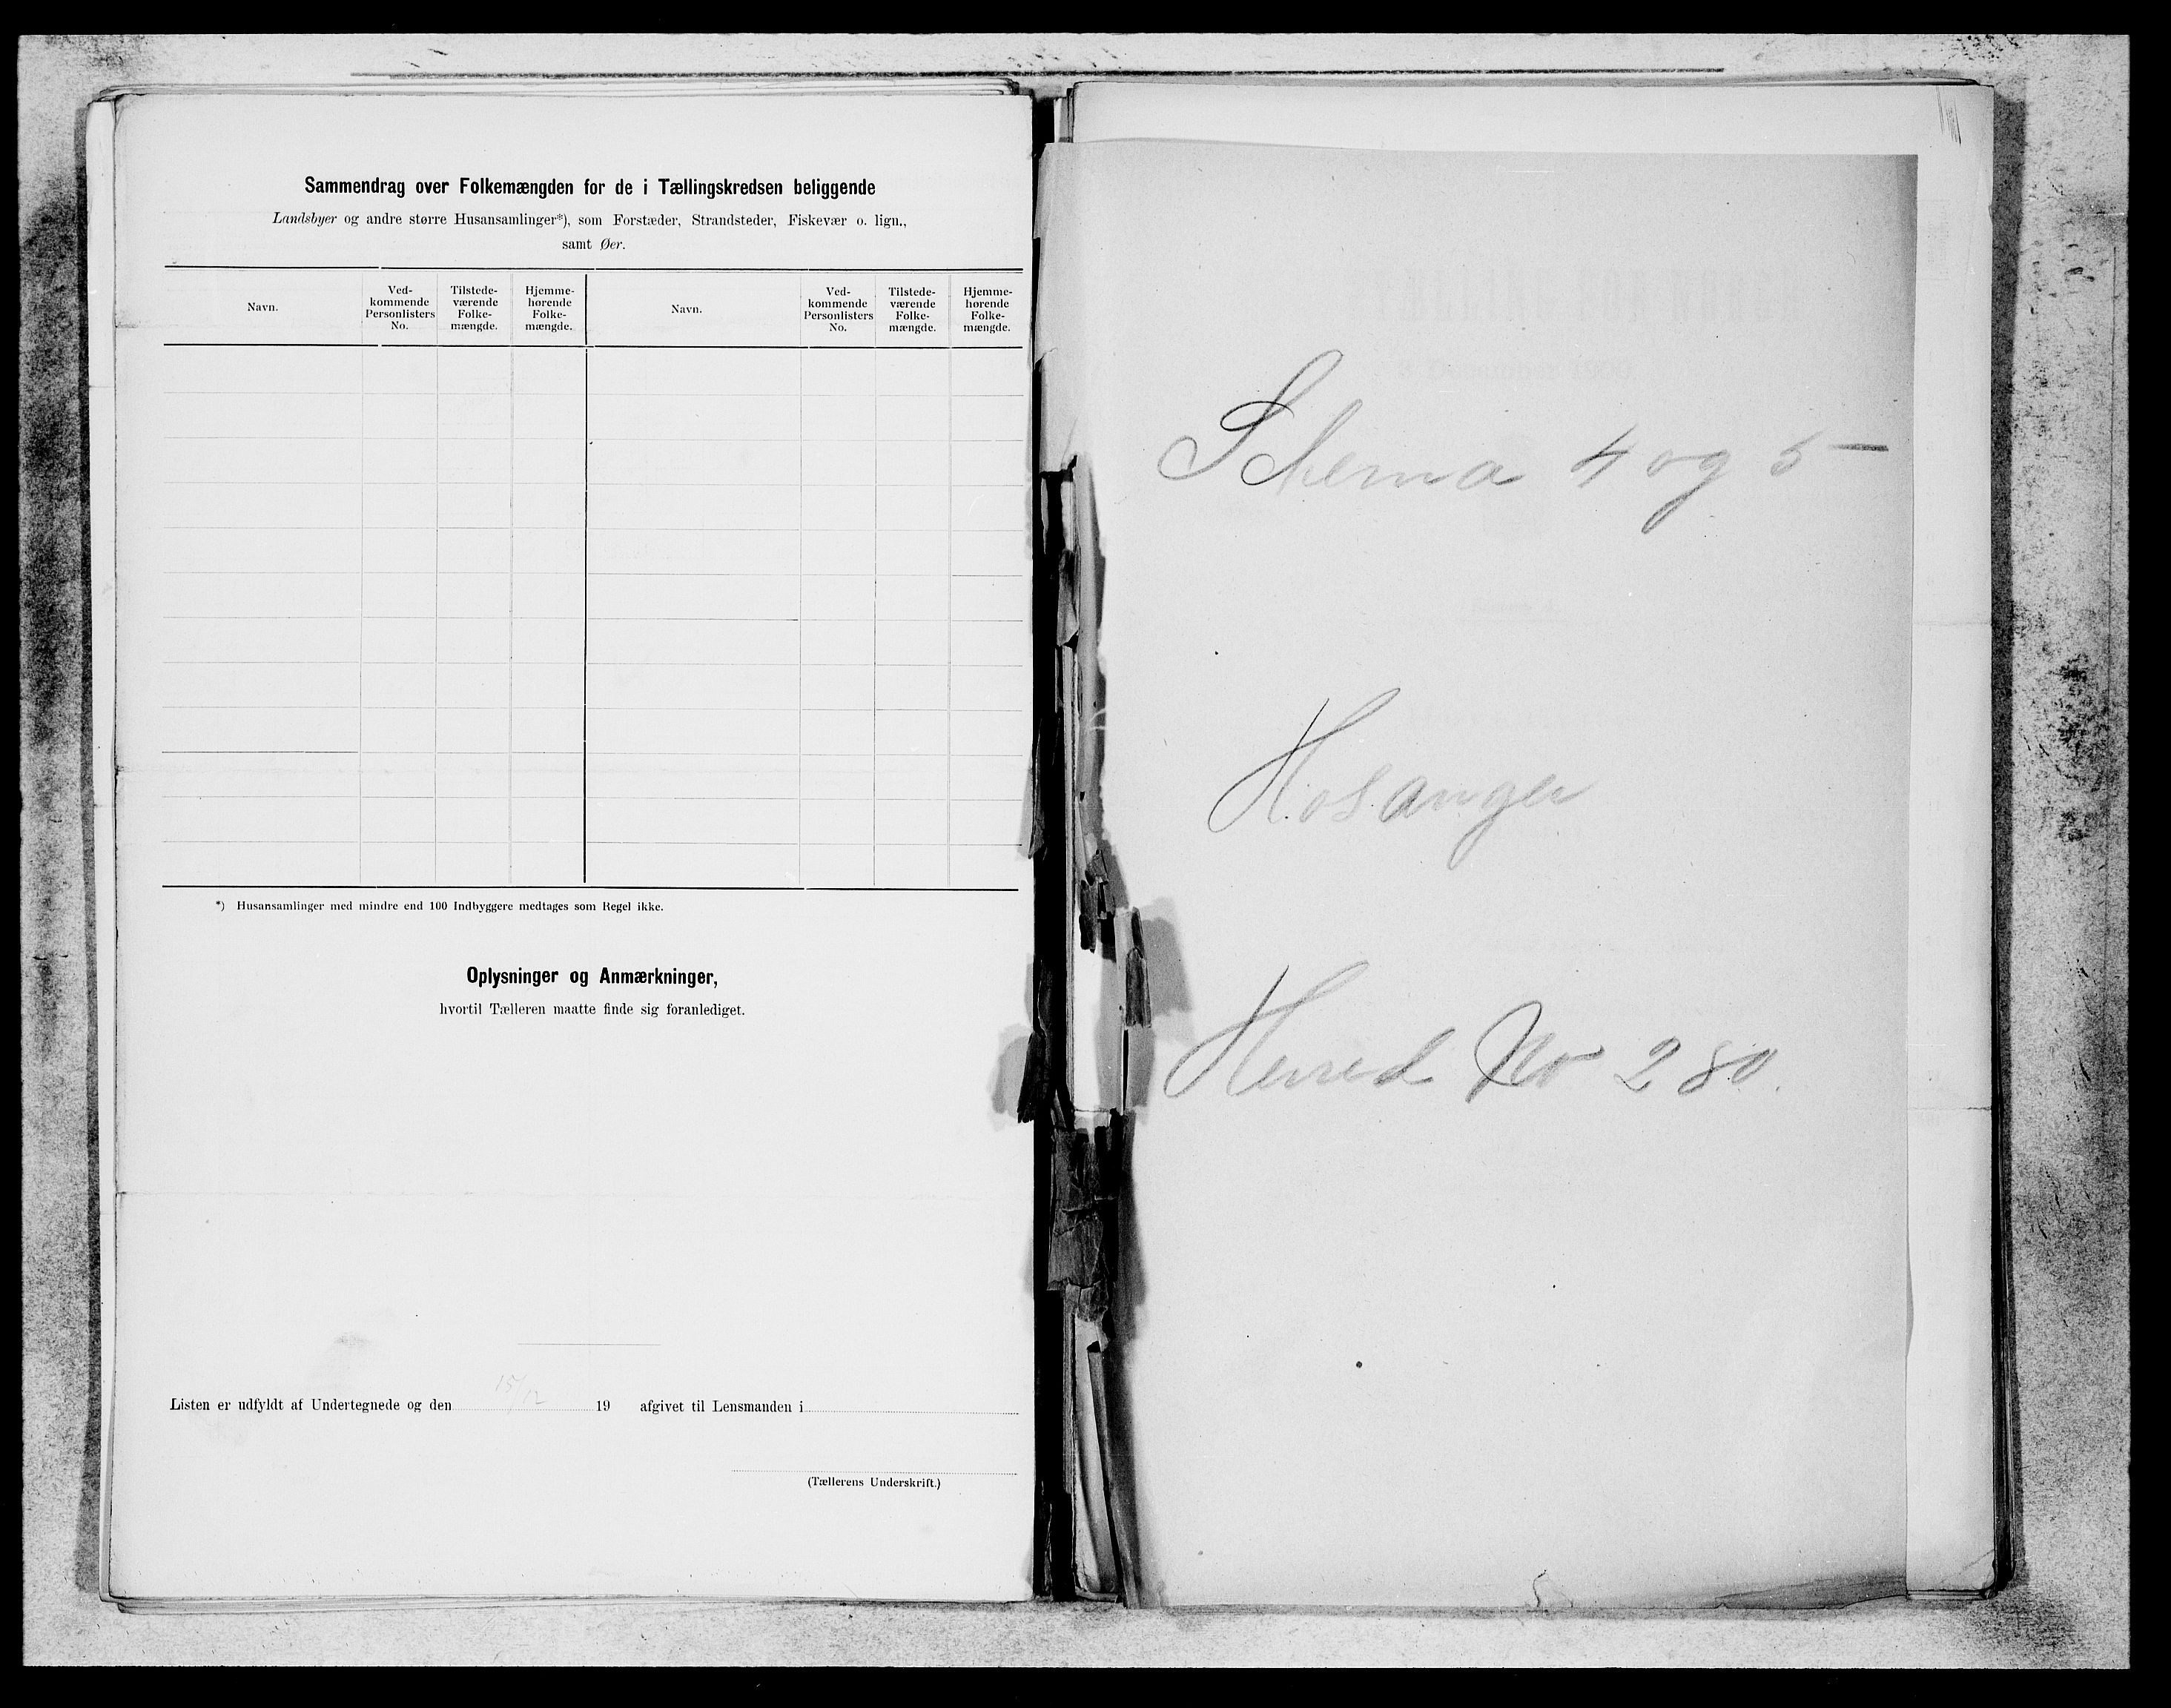 Sammendrag over Folkemængden for de i Tællingskredsen beliggende
Landsbyer og andre større Husansamlinger*), som Forstæder, Strandsteder, Fiskevær o. lign.,
samt Øer.
Navn.
Ved-
kommende
Personlisters
No.
Tilstede-
værende
Folke-
mængde.
Hjemme-
hørende
Folke-
mængde.
Navn.
Ved-
kommende
Personlisters
No.
Tilstede-
værende
Folke-
mængde.
Hjemme-
hørende
Folke-
mængde.
*) Husansamlinger med mindre end 100 Indbyggere medtages som Regel ikke.
Oplysninger og Anmærkninger,
hvortil Tælleren maatte finde sig foranlediget.
Listen er udfyldt af Undertegnede og den 15/12 19 afgivet til Lensmanden i
(Tællerens Underskrift.)
Schema 4 og 5
Hosanger
Herred No 280.